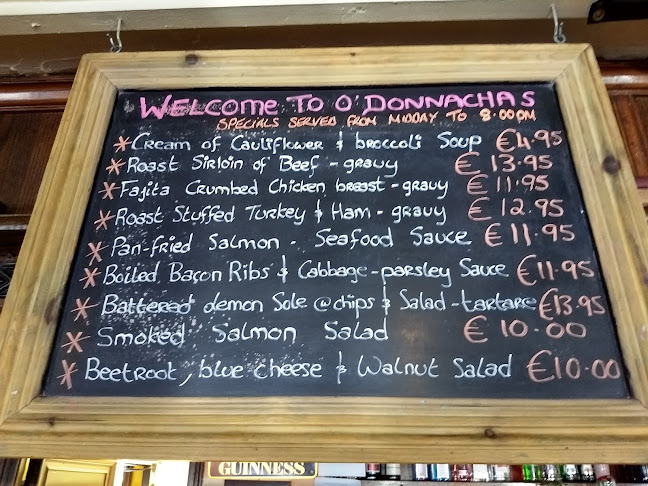 WELCOME TO O'DONNACHAS
SPECIALS SERVED FROM MIDDAY TO 8:00PM
* Cream of Cauliflower & broccoli Soup €4.95
* Roast Sirloin of Beef - gravy €13.95
* Fajita Crumbed Chicken breast - gravy €11.95
* Roast Stuffed Turkey & Ham - gravy €12.95
* Pan-fried Salmon - Seafood Sauce €11.95
* Boiled Bacon Ribs & Cabbage - parsley Sauce €11.95
* Battered demon Sole @chips & Salad - tartare €13.95
* Smoked Salmon Salad €10.00
* Beetroot, blue cheese & Walnut Salad €10.00
GUINNESS